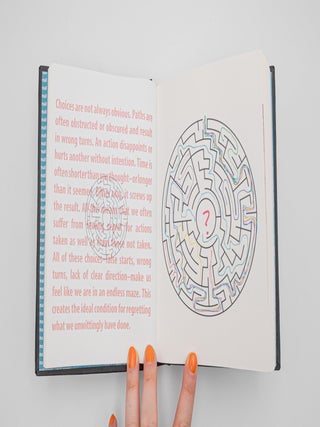 Choices are not always obvious. Paths are
often obstructed or obscured and result
in wrong turns. An action disappoints or
hurts another without intention. Time is
often shorter than you thought–or longer
than it seemed. screws up
the result. All this means that we often
suffer from for actions
taken as well as those not taken.
All of these choices–false starts, wrong
turns, lack of clear direction–make us
feel like we are in an endless maze. This
creates the ideal condition for regretting
what we unwittingly have done.
?